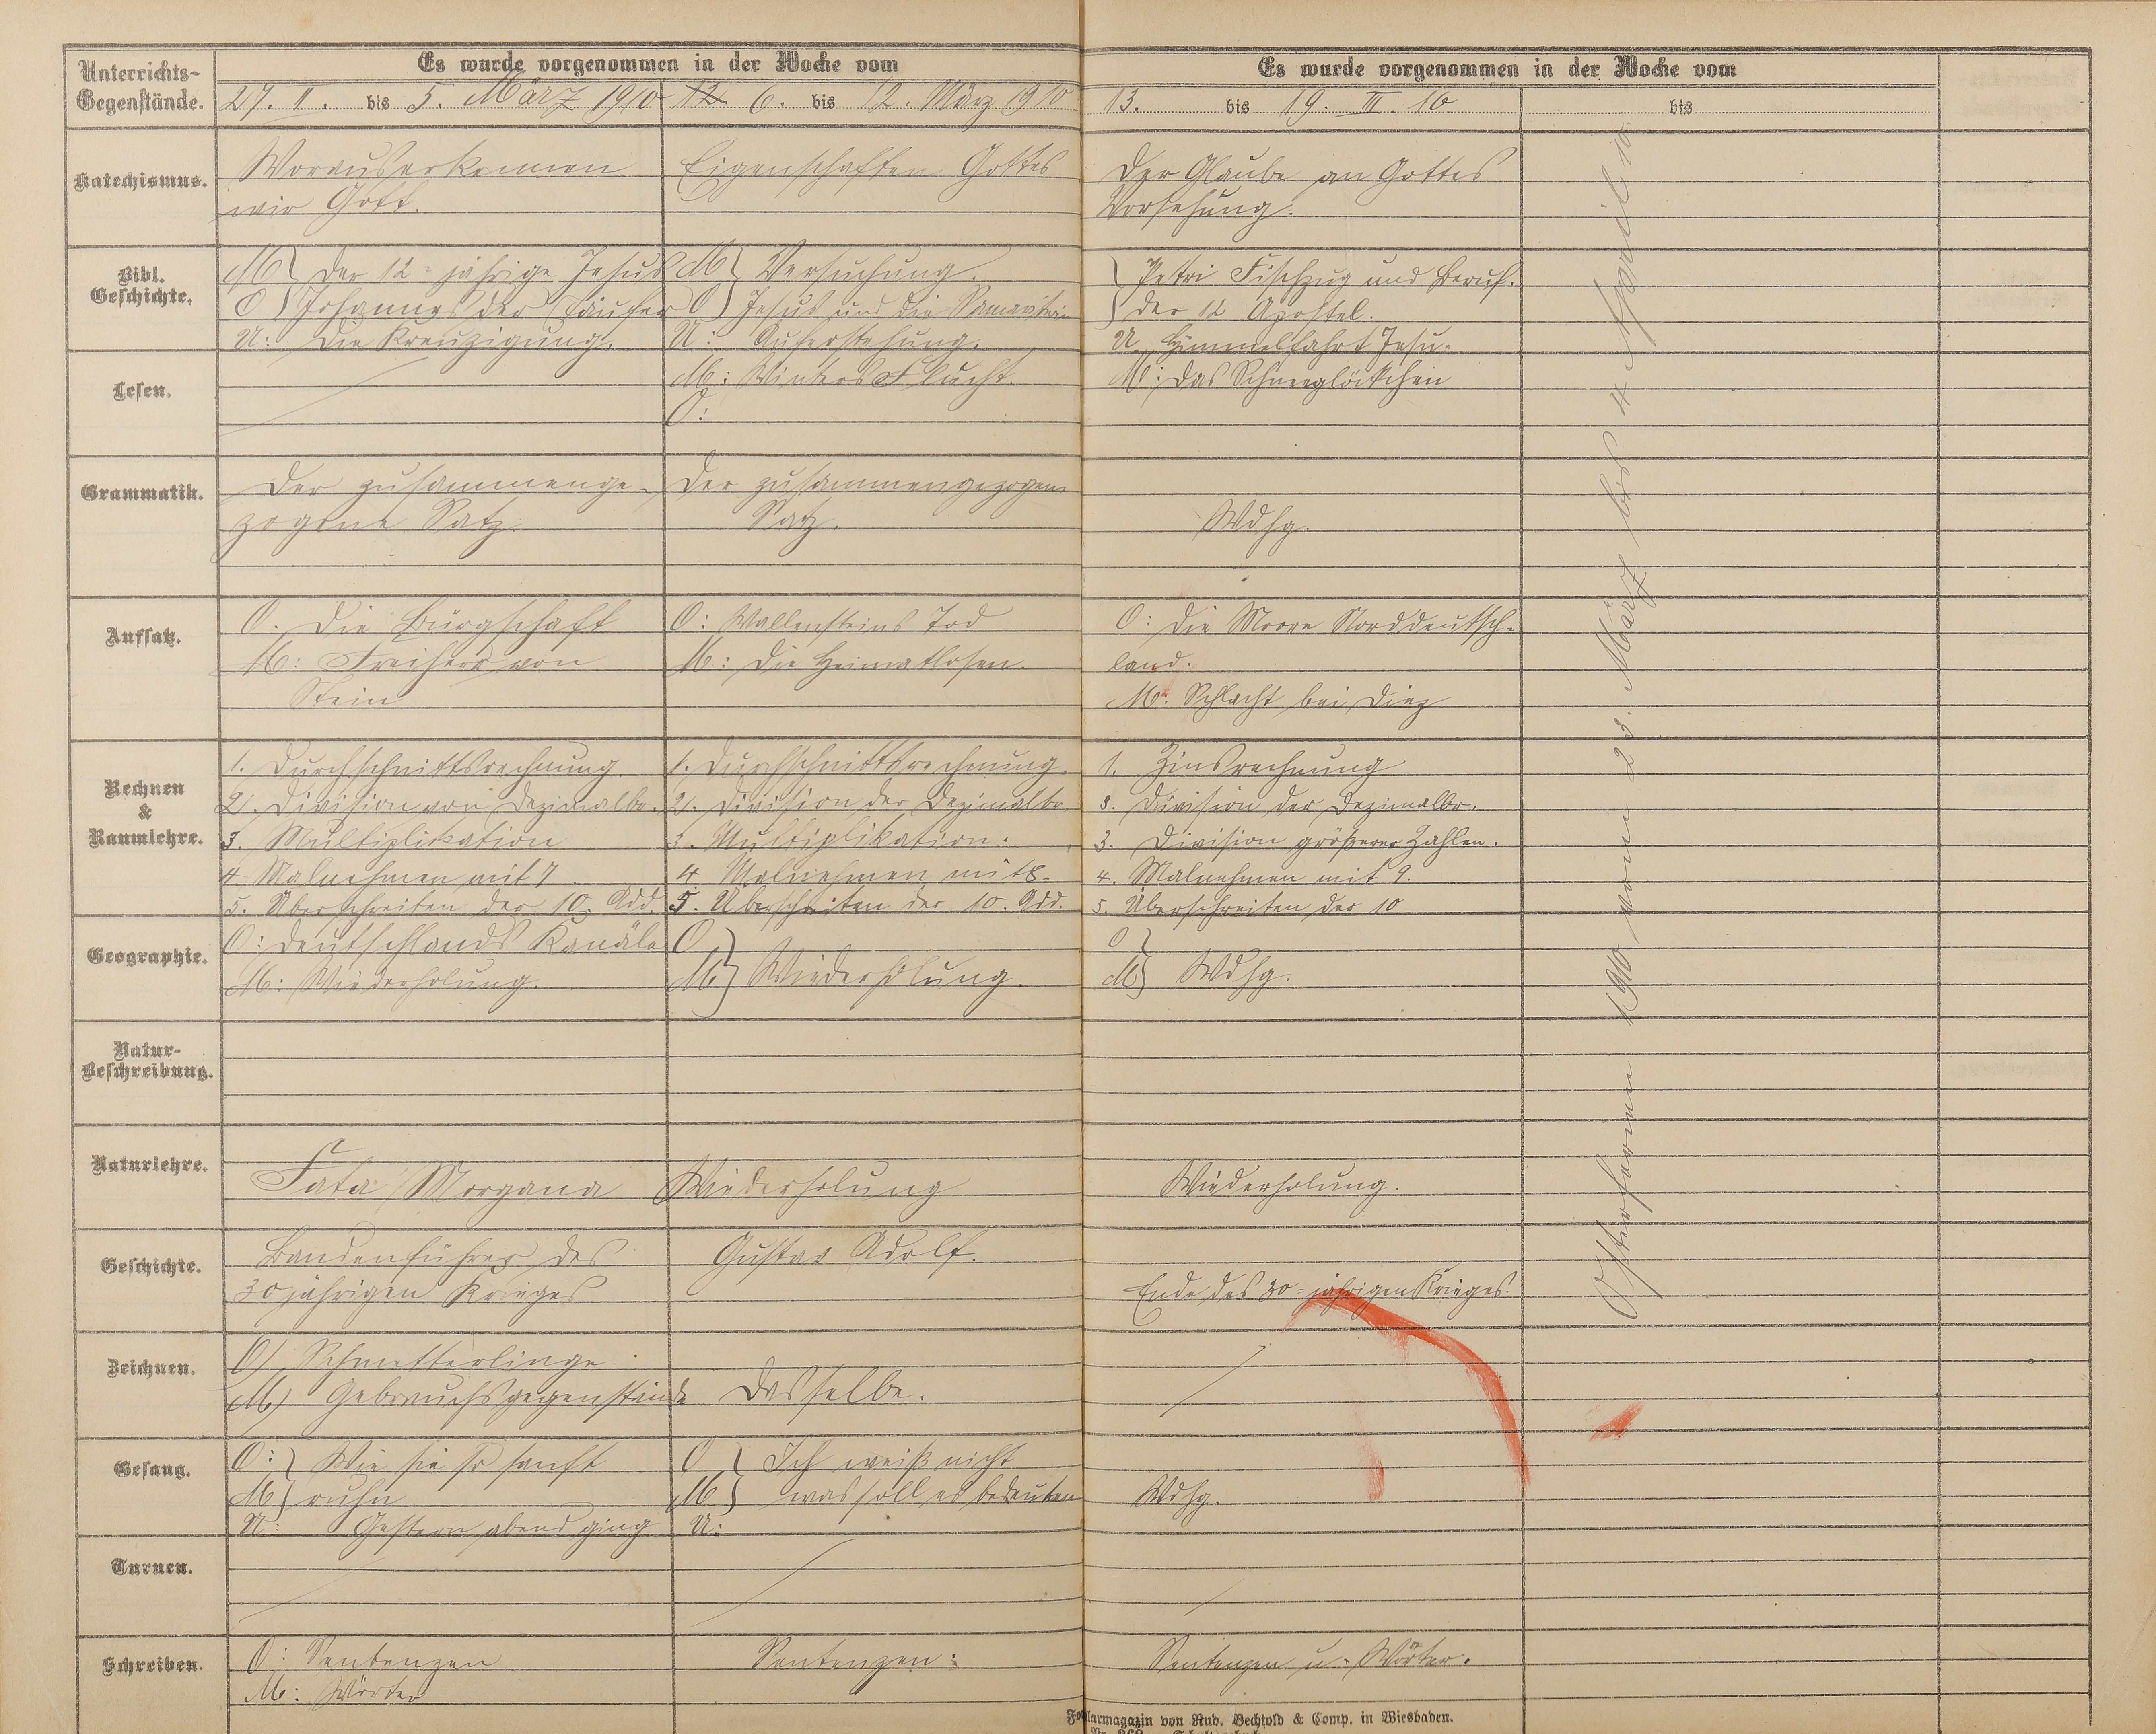 Unterrichts-
Gegenstände.
Es wurde vorgenommen in der Woche vom
27. II. bis 5. März 1910
12 6. bis 12. März 1910
Es wurde vorgenommen in der Woche vom
13. bis 19. III. 10
bis
Katechismus.
Woraus erkennen
wir Gott.
Eigenschaften Gottes
Der Glaube an Gottes
Vorsehung.
Bibl.
Geschichte.
M } Der 12-jährige Jesus
O } Johannes der Täufer
U: Die Kreuzigung.
M } Versuchung.
O } Jesus und die Samariterin
U: Auferstehung.
} Petri Fischzug und Beruf.
} der 12 Apostel.
U. Himmelfahrt Jesu.
Lesen.
M: Winters Flucht.
O:
M: Das Schneeglöckchen
Grammatik.
Der zusammenge-
zogene Satz.
Der zusammengezogene
Satz.
Wdhg.
Aufsatz.
O. Die Bürgschaft
M: Freiherr von
Stein
O: Wallensteins Tod
M: Die Heimatlosen.
O: Die Moore Norddeutsch-
land.
M: Schlacht bei Diez
Rechnen
&
Raumlehre.
1. Durchschnittsrechnung.
2. Division von Dezimalbr.
3. Multiplikation
4. Malnehmen mit 7
5. Überschreiten der 10. Add.
1. Durchschnittsrechnung.
2. Division der Dezimalbr.
3. Multiplikation.
4 Malnehmen mit 8.
5. Überschreiten der 10. Add.
1. Zinsrechnung
3. Division der Dezimalbr.
3. Division größerer Zahlen.
4. Malnehmen mit 9.
5. Überschreiten der 10
Geographie.
O: Deutschlands Kanäle
M: Wiederholung.
O }
M } Wiederholung.
O }
M } Wdhg.
Natur-
Beschreibung.
Naturlehre.
Fata Morgana
Wiederholung
Wiederholung.
Geschichte.
Bandenführer des
30jährigen Krieges
Gustav Adolf.
Ende des 30-jährigen Krieges.
Zeichnen.
O) Schmetterlinge.
M) Gebrauchsgegenstände
Dasselbe.
Gesang.
O: } Wie sie so sanft
M } ruhn
U: Gestern abend ging
O } Ich weiß nicht
M } was soll es bedeuten
U:
Wdhg.
Turnen.
Schreiben.
O: Sentenzen
M: Wörter
Sentenzen:
Sentenzen u. Wörter.
Osterferien 1910 vom 23. März bis 4 April 10
Formularmagazin von Rud. Bechtold & Comp. in Wiesbaden.